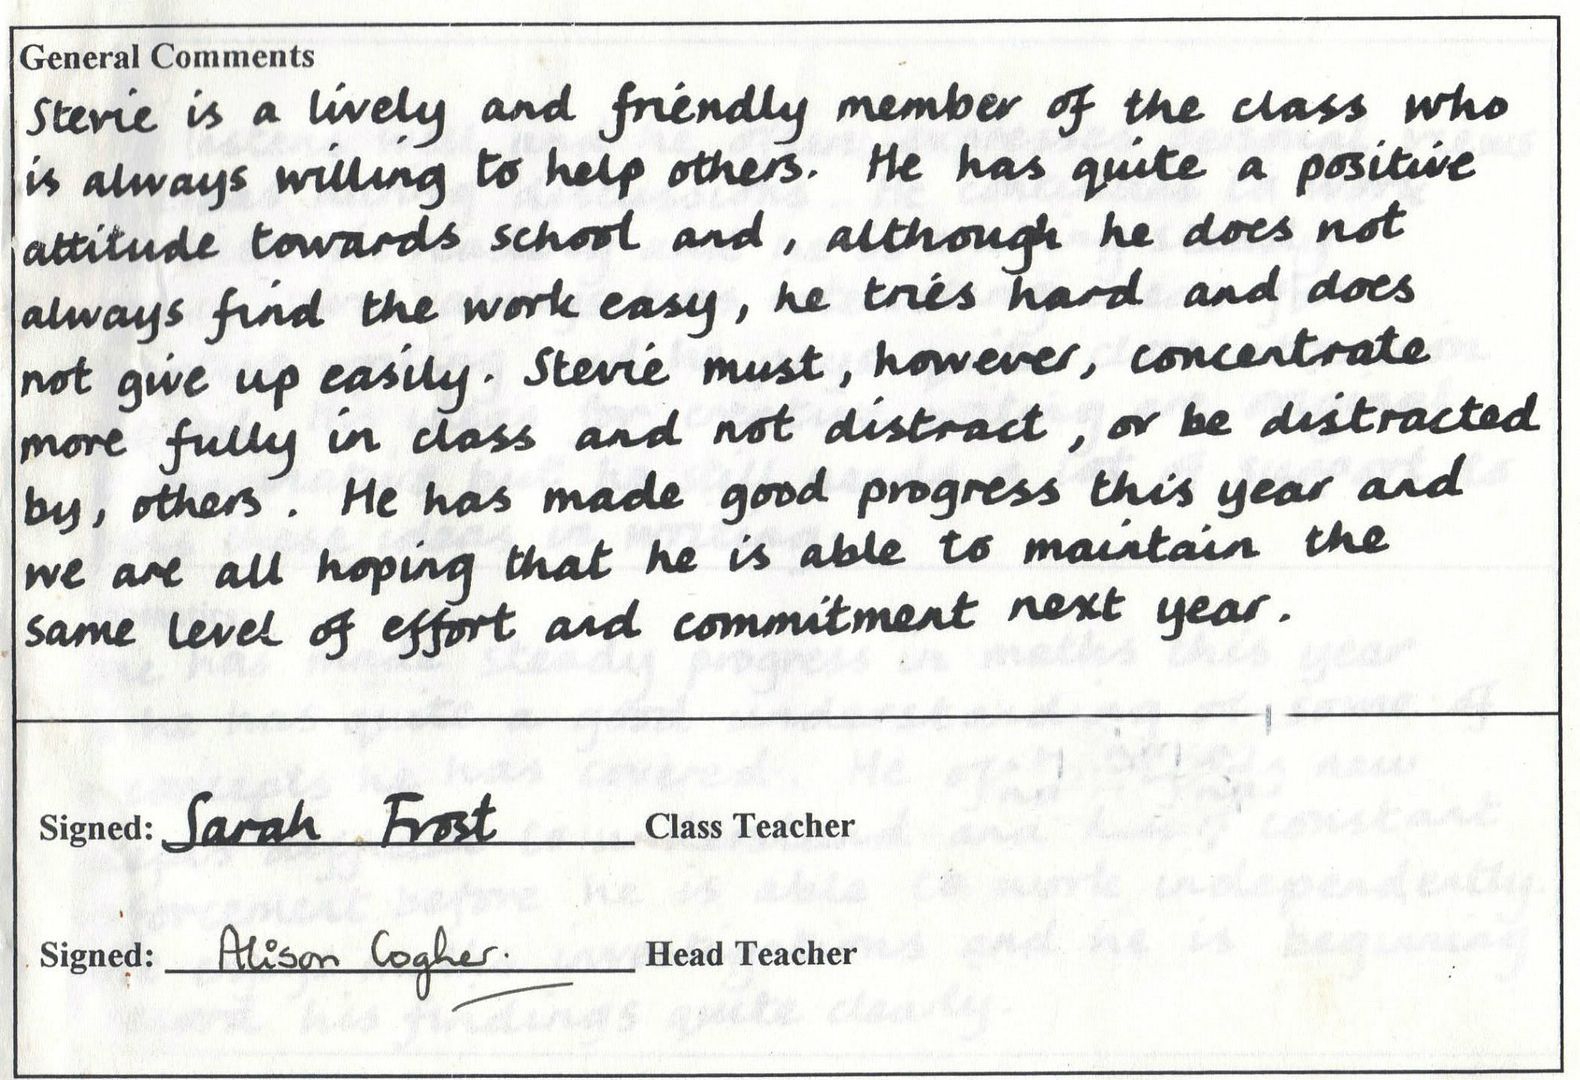 General Comments
Stevie is a lively and friendly member of the class who
is always willing to help others. He has quite a positive
attitude towards school and, although he does not
always find the work easy, he tries hard and does
not give up easily. Stevie must, however, concentrate
more fully in class and not distract, or be distracted
by, others. He has made good progress this year and
we are all hoping that he is able to maintain the
same level of effort and commitment next year.
Signed: Sarah Frost Class Teacher
Signed: Alison Cogher. Head Teacher